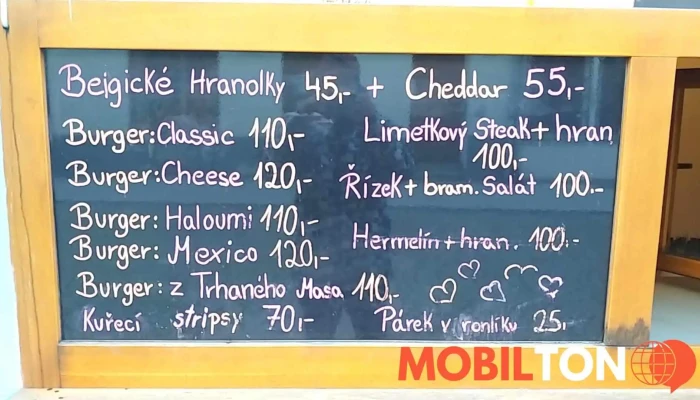 Belgické Hranolky 45,- + Cheddar 55,-
Burger: Classic 110,-
Burger: Cheese 120,-
Burger: Haloumi 110,-
Burger: Mexico 120,-
Burger: z Trhaného Masa 110,-
Kuřecí stripsy 70,-
Limetkový Steak + hran
100,-
Řízek + bram. Salát 100.-
Hermelín + hran. 100.-
Párek v ronlíku 25,
MOBILTON